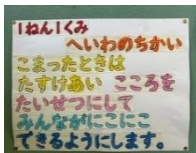 1ねん1くみ
へいわのちかい
こまったときは
たすけあい こころを
たいせつにして
みんながにこにこ
できるようにします。